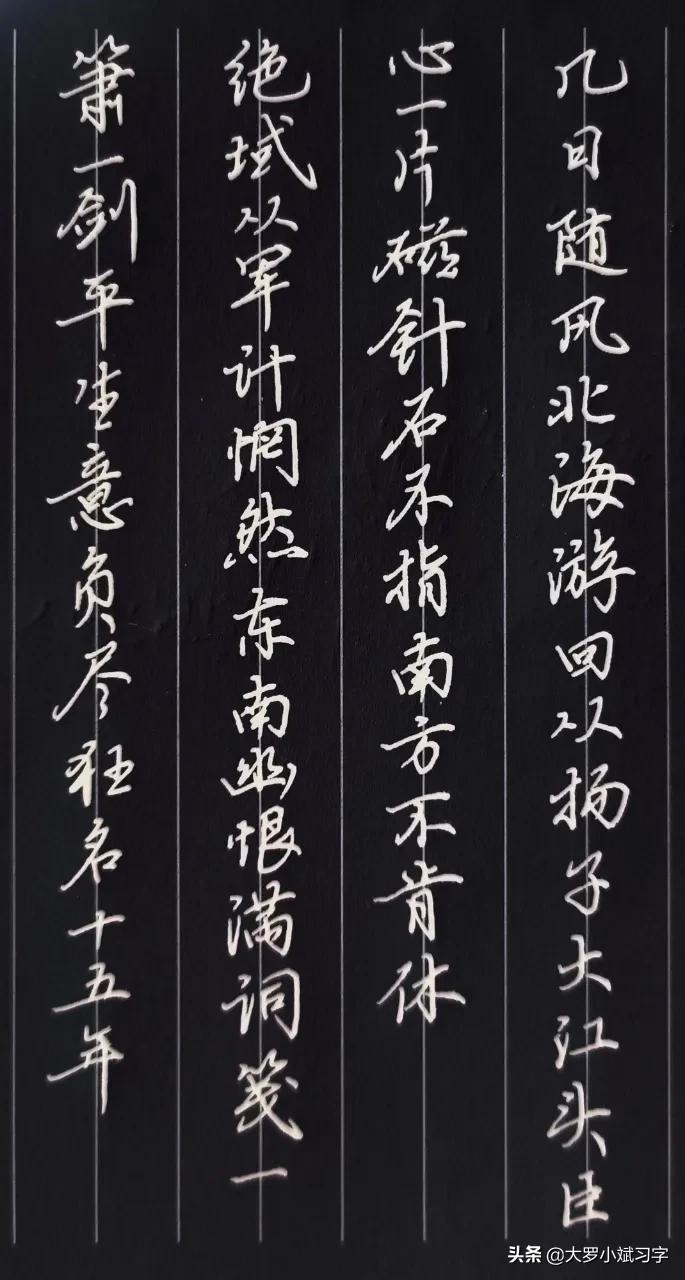 几日随风北海游回从扬子大江头臣
心一片磁针石不指南方不肯休
绝域从军计惘然东南幽恨满词笺一
箫一剑平生意负尽狂名十五年
头条 @大罗小斌习字